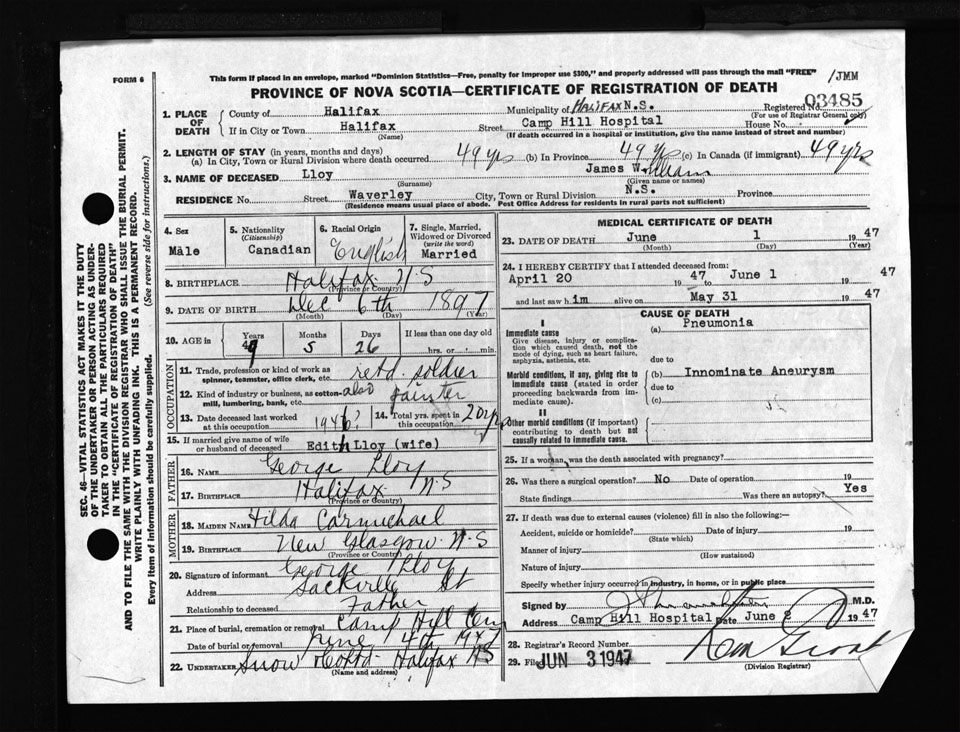 FORM 6
This form if placed in an envelope, marked "Dominion Statistics—Free, penalty for improper use $300," and properly addressed will pass through the mail "FREE"
/JMM
PROVINCE OF NOVA SCOTIA—CERTIFICATE OF REGISTRATION OF DEATH
SEC. 46—VITAL STATISTICS ACT MAKES IT THE DUTY
OF THE UNDERTAKER OR PERSON ACTING AS UNDER-
TAKER TO OBTAIN ALL THE PARTICULARS REQUIRED
IN THE "CERTIFICATE OF REGISTRATION OF DEATH"
AND TO FILE THE SAME WITH THE DIVISION REGISTRAR WHO SHALL ISSUE THE BURIAL PERMIT.
WRITE PLAINLY WITH UNFADING INK. THIS IS A PERMANENT RECORD.
Every item of information should be carefully supplied. (See reverse side for instructions.)
1. PLACE OF DEATH
County of Halifax Municipality of HALIFAX N.S. Registered No. 03485
(For use of Registrar General only)
If in City or Town Halifax Street Camp Hill Hospital House No.
(Name) (If death occurred in a hospital or institution, give the name instead of street and number)
2. LENGTH OF STAY (in years, months and days)
(a) In City, Town or Rural Division where death occurred 49 yrs (b) In Province 49 yrs (c) In Canada (if immigrant) 49 yrs
3. NAME OF DECEASED Lloy James William
(Surname) (Given name or names)
RESIDENCE No. Street Waverley City, Town or Rural Division N.S. Province
(Residence means usual place of abode. Post Office Address for residents in rural parts not sufficient)
4. Sex Male
5. Nationality (Citizenship) Canadian
6. Racial Origin English
7. Single, Married, Widowed or Divorced (write the word) Married
8. BIRTHPLACE Halifax N S
(Province or Country)
9. DATE OF BIRTH Dec 6th 1897
(Month) (Day) (Year)
10. AGE in Years Months Days If less than one day old
49 5 26 hrs. or min.
OCCUPATION
11. Trade, profession or kind of work as spinner, teamster, office clerk, etc. retd. soldier
12. Kind of industry or business, as cotton-mill, lumbering, bank, etc. also painter
13. Date deceased last worked at this occupation 1946?
14. Total yrs. spent in this occupation 20 yrs
15. If married give name of wife or husband of deceased Edith Lloy (wife)
FATHER
16. NAME George Lloy
17. BIRTHPLACE Halifax N-S
(Province or Country)
MOTHER
18. MAIDEN NAME Tilda Carmichael
19. BIRTHPLACE New Glasgow N-S
(Province or Country)
20. Signature of informant George Lloy
Address Sackville St
Relationship to deceased Father
21. Place of burial, cremation or removal Camp Hill Cem
Date of burial or removal June 4th 1947
22. UNDERTAKER Snow & Co Ltd. Halifax NS
(Name and address)
MEDICAL CERTIFICATE OF DEATH
23. DATE OF DEATH June 1 1947
(Month) (Day) (Year)
24. I HEREBY CERTIFY that I attended deceased from:
April 20 1947 to June 1 1947
and last saw him alive on May 31 1947
CAUSE OF DEATH
I
Immediate cause (a) Pneumonia
Give disease, injury or complication which caused death, not the mode of dying, such as heart failure, asphyxia, asthenia, etc.
due to
Morbid conditions, if any, giving rise to immediate cause (stated in order proceeding backwards from immediate cause).
(b) Innominate Aneurysm
due to
(c)
II
Other morbid conditions (if important) contributing to death but not causally related to immediate cause.
25. If a woman, was the death associated with pregnancy?
26. Was there a surgical operation? No Date of operation 19
State findings Was there an autopsy? Yes
27. If death was due to external causes (violence) fill in also the following:
Accident, suicide or homicide? Date of injury 19
(State which)
Manner of injury
(How sustained)
Nature of injury
Specify whether injury occurred in industry, in home, or in public place
Signed by M.D.
Address Camp Hill Hospital Date June 2 1947
28. Registrar's Record Number
29. Filed JUN 3 1947
(Division Registrar)